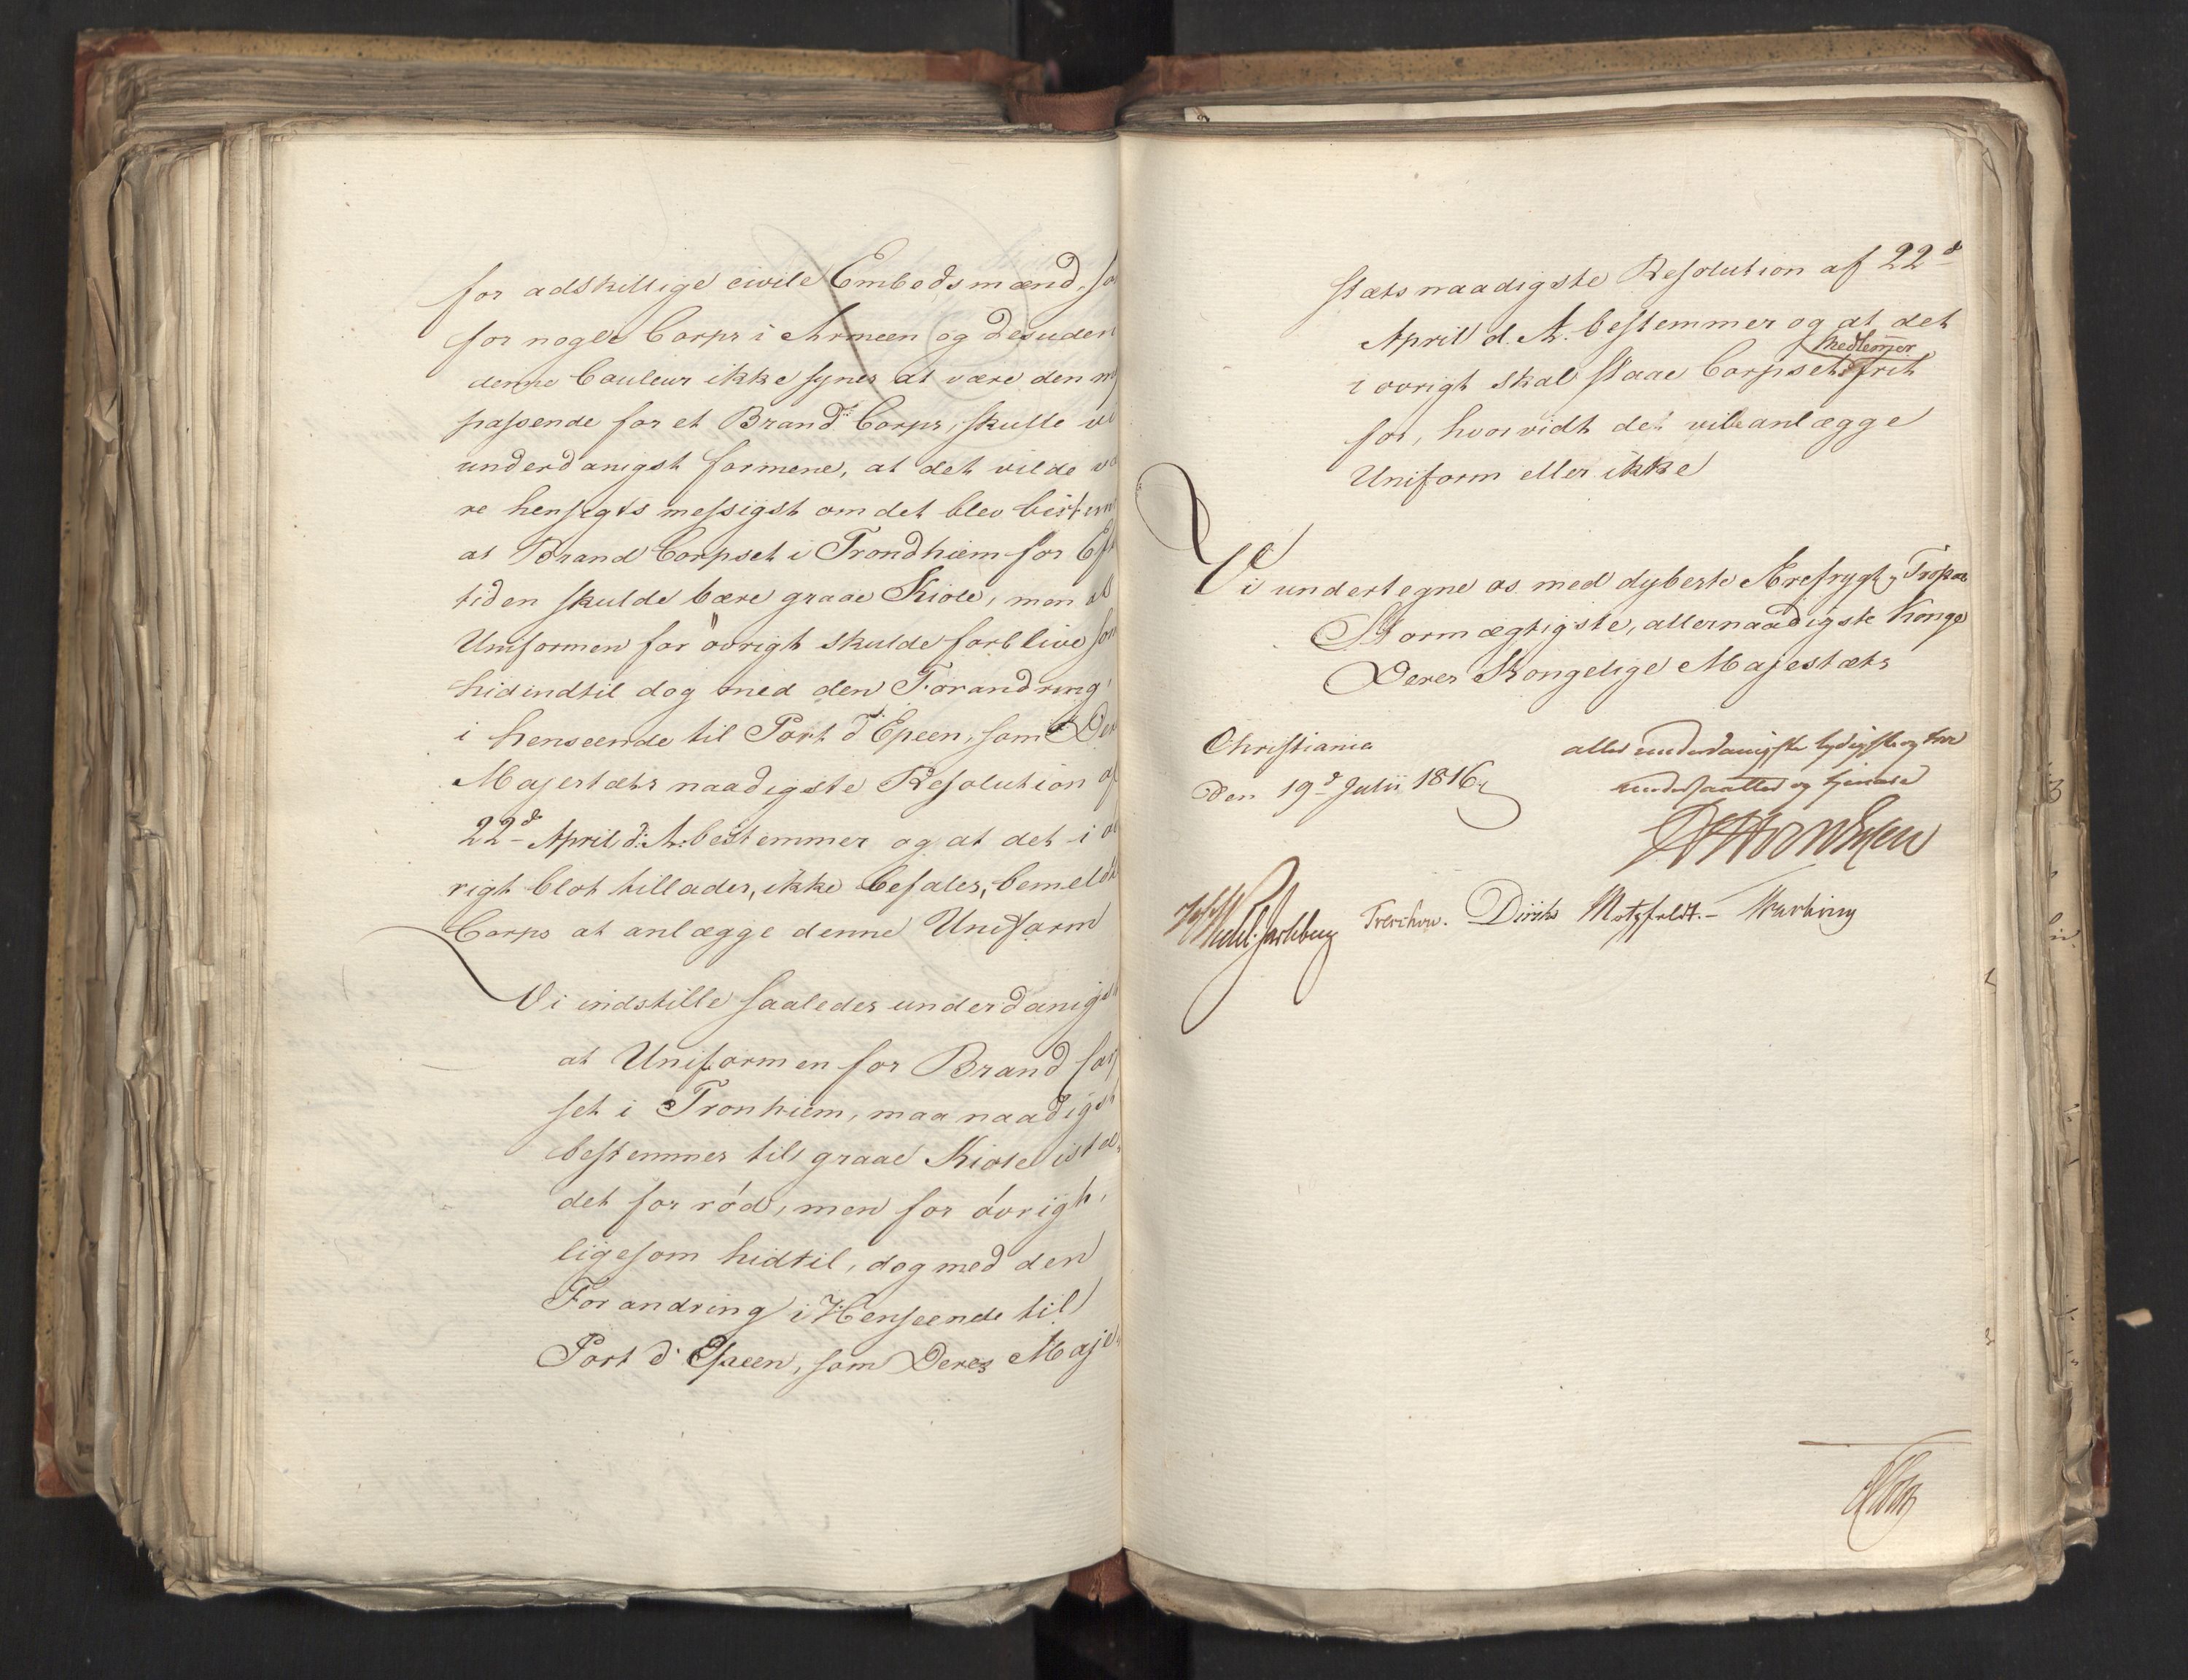 for adskillige civile Embedsmænd, so
for nogle Corps i Armeen og desuden
denne Couleur ikke synes at være den m
passende for et Brand Corps, skulle vi
underdanigst formene, at det vilde væ
re hensigts messigst om det blev bestem
at Brand Corpset i Trondhiem for Eft
tiden skulde bære graae Kiole, men at
Uniformen for övrigt skulde forblive som
hidindtil dog med den Forandring
i henseende til Port d'Epeen, som Der
Majestæts naadigste Resolution af
22d April d: A: bestemmer og at det i øv
rigt blot tillades, ikke befales, bemeldte
Corps at anlægge denne Uniform
Vi indstille saaledes underdanigst
at Uniformen for Brand Corp
set i Tronhiem, maa naadigst
bestemmes til graae Kiole istæ
det for rød, men for övrigt,
ligesom hidtil, dog med den
Forandring i Henseende til
Port d'Epeen, som Deres Maje-
stæts naadigste Resolution af 22d
April d. A. bestemmer og at det
Medlemmer
i ovrigt skal staae Corpsets frit
for, hvorvidt de vil anlægge
Uniform eller ikke
Vi undertegne os med dybeste Ærefrygt,
Stormægtigste, allernaadigste Konge
Deres Kongelige Majestæts
Christiania
den 19d Julii 1816
allerunderdanigste lydigste og troe
undersaatter og tjenere
Wedel Jarlsberg Treschow. Diriks Motzfeldt.